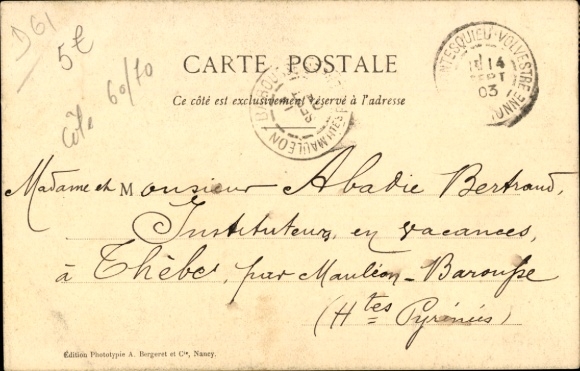 D61
5€
côte 60/70
CARTE POSTALE
Ce côté est exclusivement réservé à l'adresse
MONTESQUIEU-VOLVESTRE
14
SEPT
03
MAULÉON
Madame et Monsieur Abadie Bertrand,
Instituteurs, en vacances,
à Thèbe, par Mauléon-Barousse
(Htes Pyrénées)
Édition Phototypie A. Bergeret et Cie, Nancy.